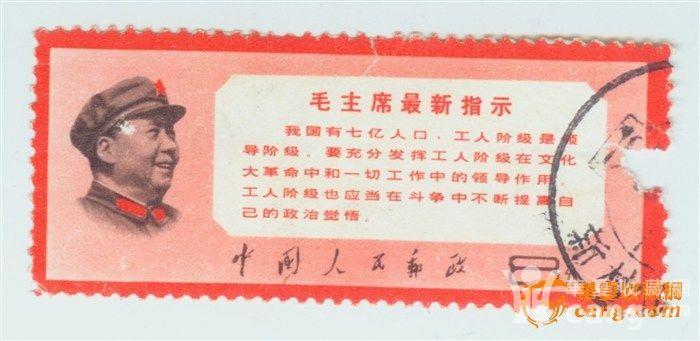 毛主席最新指示
我国有七亿人口,工人阶级是领
导阶级。要充分发挥工人阶级在文化
大革命中和一切工作中的领导作用。
工人阶级也应当在斗争中不断提高自
己的政治觉悟。
中国人民邮政
华夏收藏网
cang.com